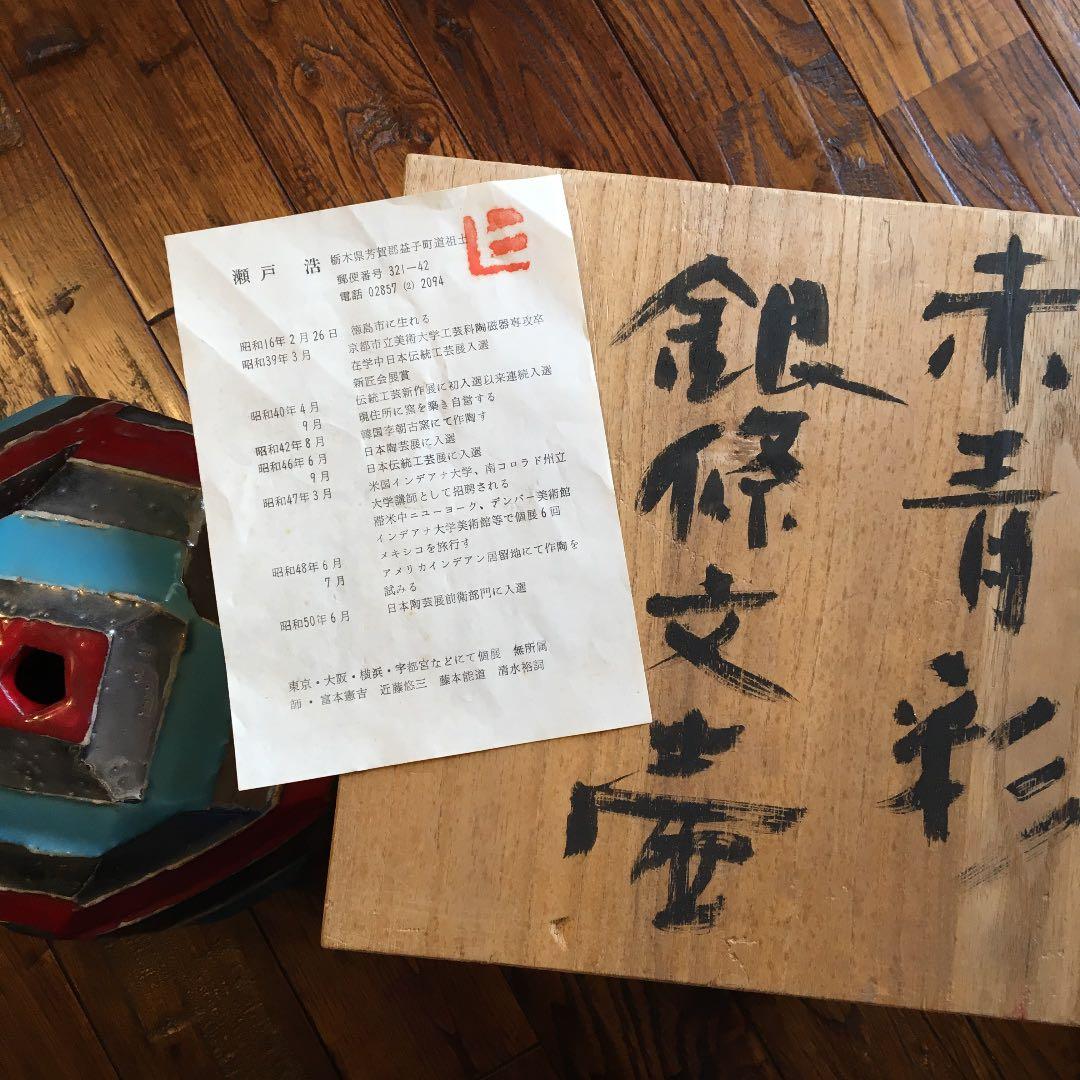 瀬戸 浩
栃木県芳賀郡益子町道祖土
郵便番号 321—42
電話 02857 (2) 2094
昭和16年2月26日 徳島市に生れる
昭和39年3月 京都市立美術大学工芸科陶磁器専攻卒
在学中日本伝統工芸展入選
新匠会展賞
伝統工芸新作展に初入選以来連続入選
昭和40年4月 現住所に窯を築き自営する
9月 韓国李朝古窯にて作陶す
昭和42年8月 日本陶芸展に入選
昭和46年6月 日本伝統工芸展に入選
9月 米国インデアナ大学、南コロラド州立
昭和47年3月 大学講師として招聘される
滞米中ニューヨーク、デンバー美術館
インデアナ大学美術館等で個展6回
メキシコを旅行す
昭和48年6月 アメリカインデアン居留地にて作陶を
7月 試みる
昭和50年6月 日本陶芸展前衛部門に入選
東京・大阪・横浜・宇都宮などにて個展 無所属
師・富本憲吉 近藤悠三 藤本能道 清水裕詞
赤青彩
銀條文壷